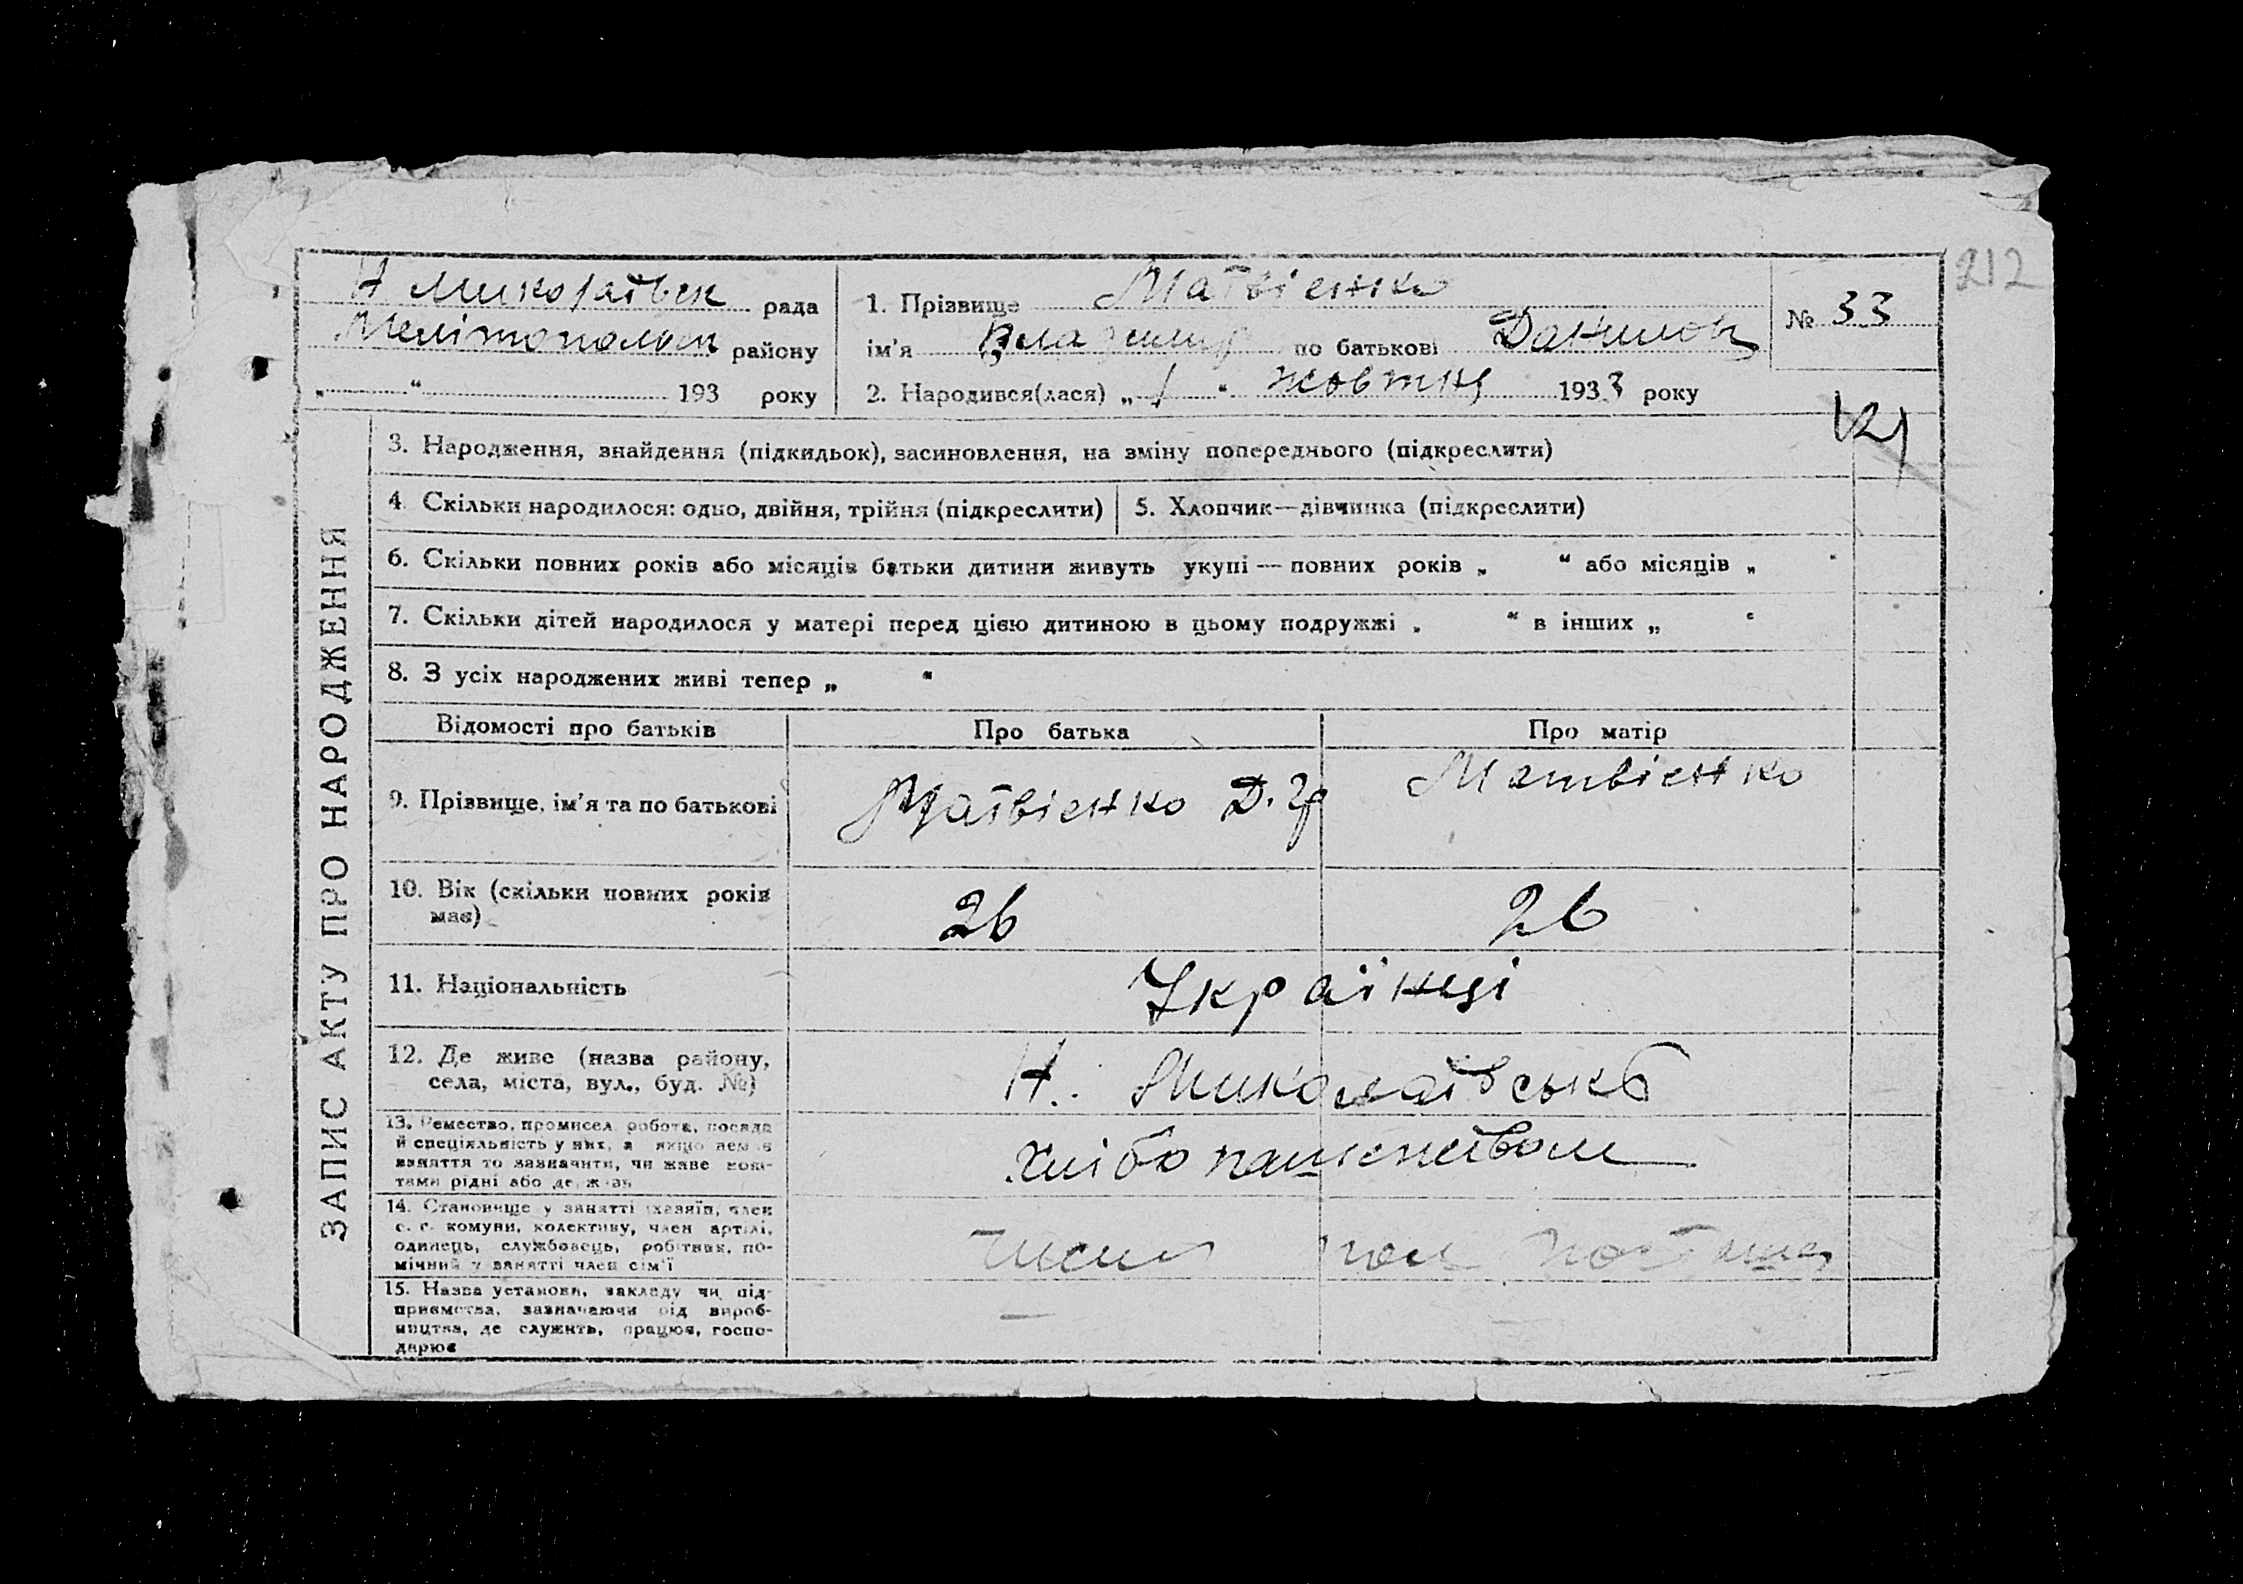 212
Н Миколаївск рада
Мелітопольськ району
„ “ 193 року
1. Прізвище Матвіенко
ім'я Владимир по батькові Данилов
2. Народився(лася) „ 1 “ жовтня 1933 року
№ 33
ЗАПИС АКТУ ПРО НАРОДЖЕННЯ
3. Народження, знайдення (підкидьок), засиновлення, на зміну попереднього (підкреслити)
4. Скільки народилося: одно, двійня, трійня (підкреслити)
5. Хлопчик—дівчинка (підкреслити)
6. Скільки повних років або місяців батьки дитини живуть укупі — повних років „ “ або місяців „ “
7. Скільки дітей народилося у матері перед цією дитиною в цьому подружжі „ “ в інших „ “
8. З усіх народжених живі тепер „ “
Відомості про батьків
Про батька
Про матір
9. Прізвище, ім'я та по батькові
Матвіенко Д. Гр
Матвіенко
10. Вік (скільки повних років
має)
26
26
11. Національність
Українці
12. Де живе (назва району,
села, міста, вул., буд. №)
Н. Миколаївська
13. Ремество, промисел, робота, посада
й спеціяльність у них, а якщо немає
заняття то зазначити, чи живе кош-
тами рідні або держави
хлібопашеством
14. Становище у занятті (хазяїн, член
с. г. комуни, колективу, член артілі,
одинець, службовець, робітник, по-
мічний у занятті член сім'ї
член
15. Назва установи, закладу чи під-
приємства, зазначаючи рід вироб-
ництва, де служить, працює, госпо-
дарює
—